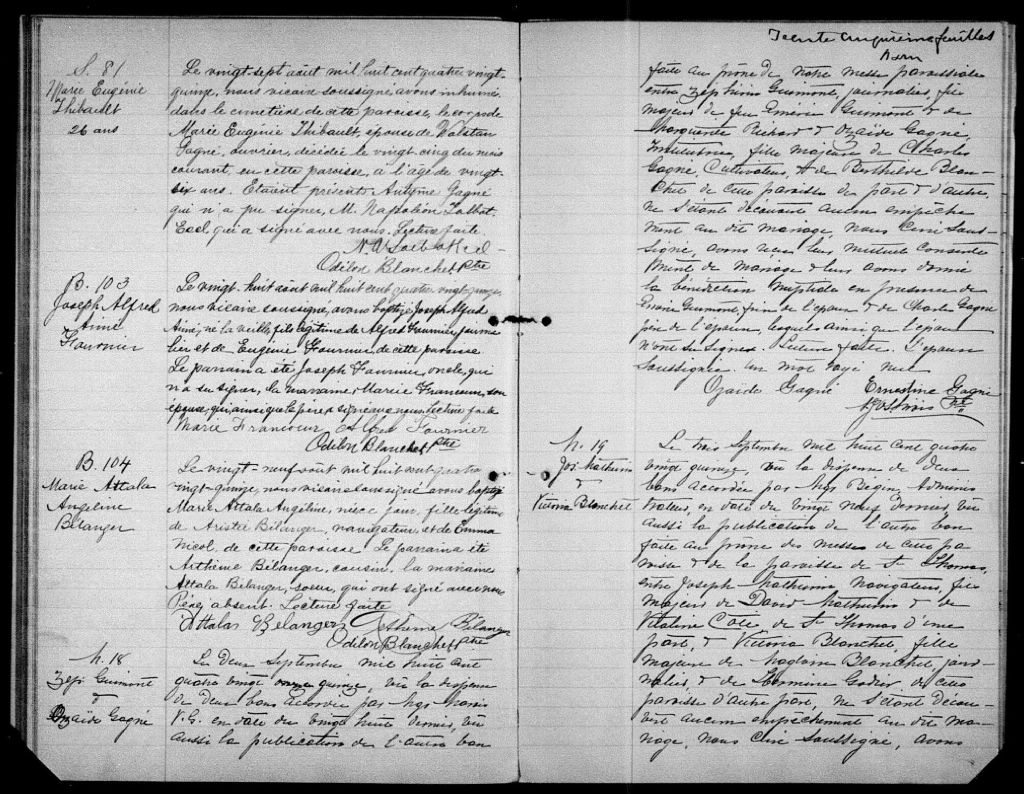 S. 81
Marie Eugénie
Thibault
26 ans
Le vingt-sept août mil huit cent quatre vingt-
quinze, nous vicaire soussigné avons inhumé
dans le cimetière de cette paroisse, le corps de
Marie Eugénie Thibault, épouse de Valstan
Gagné, ouvrier, décédée le vingt cinq du mois
courant, en cette paroisse, à l'âge de vingt-
six ans. Etaient présents Antoine Gagné
qui n'a pu signer, M. Napoléon Talbot
Eccl. qui a signé avec nous. Lecture faite
Odilon Blanchet Ptre
B. 103
Joseph Alfred
Aimé
Fournier
Le vingt-huit août mil huit cent quatre vingt quinze
nous vicaire soussigné, avons baptisé Joseph Alfred
Aimé, né la veille, fils légitime de Alfred Fournier, journa-
lier et de Eugénie Fournier, de cette paroisse
Le parrain a été Joseph Fournier, oncle, qui
n'a su signer, la marraine, Marie Francoeur, son
épouse, qui ainsi que le père a signé avec nous. Lecture faite
Marie Francoeur Fournier
Odilon Blanchet Ptre
B. 104
Marie Attala
Angéline
Bélanger
Le vingt-neuf août mil huit cent quatre
vingt-quinze, nous vicaire soussigné avons baptisé
Marie Attala Angéline, née ce jour, fille légitime
de Aristée Bélanger, navigateur, et de Emma
Nicol, de cette paroisse. Le parrain a été
Arthème Bélanger, cousin, la marraine
Attala Bélanger, soeur, qui ont signé avec nous
Père absent. Lecture faite
Attala Bélanger Arthème Bélanger
Odilon Blanchet Ptre
M. 18
Zéph Guimont
&
Ozaïde Gagné
Le deux Septembre mil huit cent
quatre vingt quinze, vu la dispense
de deux bans accordée par Mgr Marois
V.G. en date du vingt huit dernier, vu
aussi la publication de l'autre ban
Trente cinquième feuillet
faite au prône de notre messe paroissiale
entre Zéphirin Guimont, journalier, fils
majeur de feu Emérie Guimont & de
Marguerite Richard & Ozaïde Gagné,
Institutrice, fille majeure de Charles
Gagné, Cultivateur, & de Berthilde Blan-
chet de cette paroisse de part & d'autre,
ne s'étant découvert aucun empêche
ment au dit mariage, nous Curé sous-
signé, avons reçu leur mutuel consente
ment de mariage & leur avons donné
la bénédiction nuptiale en présence de
Guimont, frère de l'époux & de Charles Gagné
père de l'épouse lesquels ainsi que l'époux
n'ont su signer. Lecture faite. L'épouse
soussignée. Un mot rayé nul
Ozaïde Gagné Ernestine Gagné
Ptre
M. 19
Jos. Mathurin
&
Victoria Blanchet
Le trois Septembre mil huit cent quatre
vingt quinze, vu la dispense de deux
bans accordée par Mgr Bégin Adminis
trateur, en date du vingt neuf dernier, vu
aussi la publication de l'autre ban
faite au prône des messes de cette pa
roisse & de la paroisse de St Thomas,
entre Joseph Mathurin Navigateur, fils
majeur de David Mathurin & de
Vitaline Côté de St Thomas d'une
part, & Victoria Blanchet fille
majeure de Magloire Blanchet, jour-
nalier, & de Hermine Godin de cette
paroisse d'autre part, ne s'étant décou-
vert aucun empêchement au dit ma-
riage, nous Curé soussigné, avons